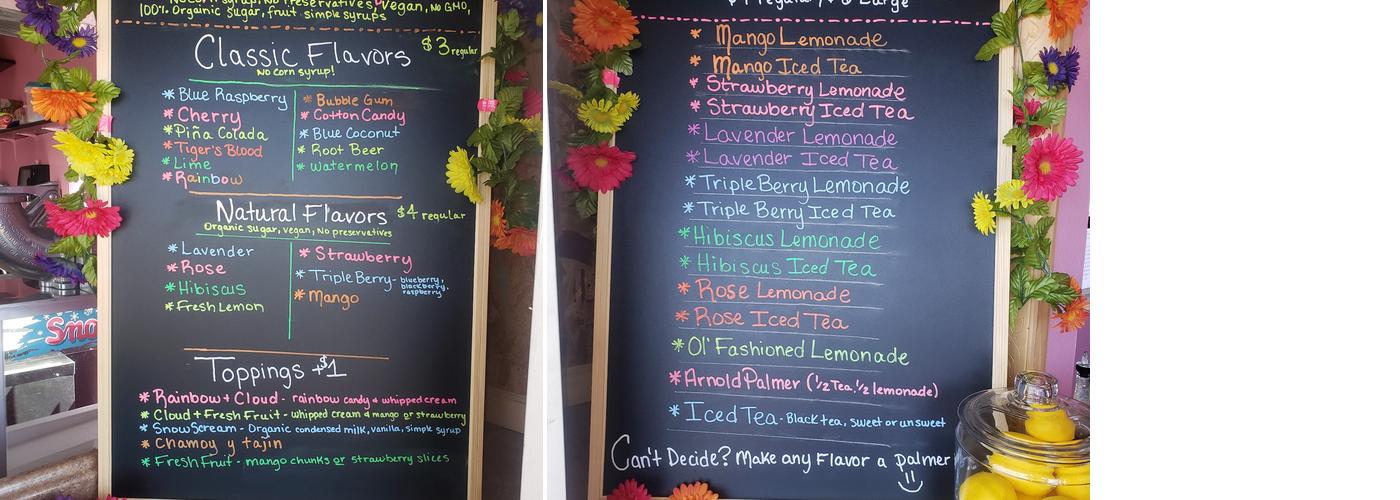 No corn syrup, No Preservatives, Vegan, No GMO,
100% Organic sugar, fruit simple syrups
Classic Flavors $3 regular
No corn syrup!
* Blue Raspberry
* Cherry
* Piña Colada
* Tiger's Blood
* Lime
* Rainbow
* Bubble Gum
* Cotton Candy
* Blue Coconut
* Root Beer
* Watermelon
Natural Flavors $4 regular
Organic sugar, vegan, No preservatives
* Lavender
* Rose
* Hibiscus
* Fresh Lemon
* Strawberry
* Triple Berry - blueberry,
blackberry,
raspberry
* Mango
Toppings +$1
* Rainbow + Cloud - rainbow candy & whipped cream
* Cloud + Fresh Fruit - whipped cream & mango or strawberry
* Snow Scream - Organic condensed milk, vanilla, simple syrup
* Chamoy y tajin
* Fresh Fruit - mango chunks or strawberry slices
Sno
Regular Large
* Mango Lemonade
* Mango Iced Tea
* Strawberry Lemonade
* Strawberry Iced Tea
* Lavender Lemonade
* Lavender Iced Tea
* Triple Berry Lemonade
* Triple Berry Iced Tea
* Hibiscus Lemonade
* Hibiscus Iced Tea
* Rose Lemonade
* Rose Iced Tea
* Ol' Fashioned Lemonade
* Arnold Palmer (1/2 Tea, 1/2 lemonade)
* Iced Tea - Black tea, sweet or unsweet
Can't Decide? Make any Flavor a palmer